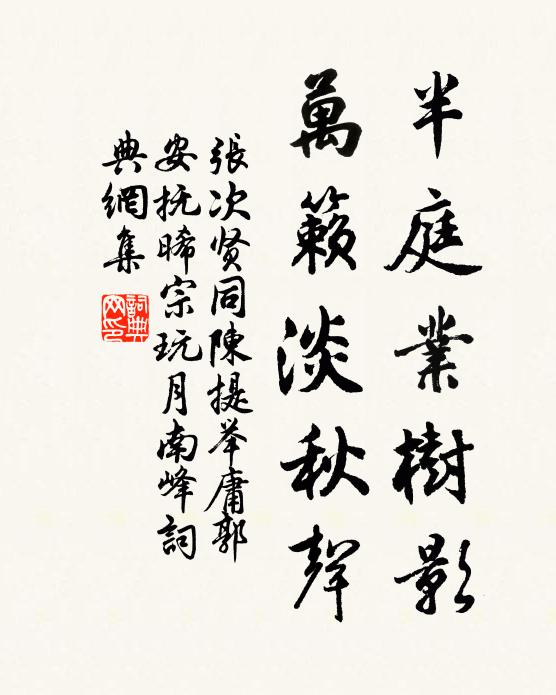 半庭業樹影
萬籟淡秋聲
張次贤同陳提举庸郭
安抚晞宗玩月南峰詞
典網集
詞典
网印